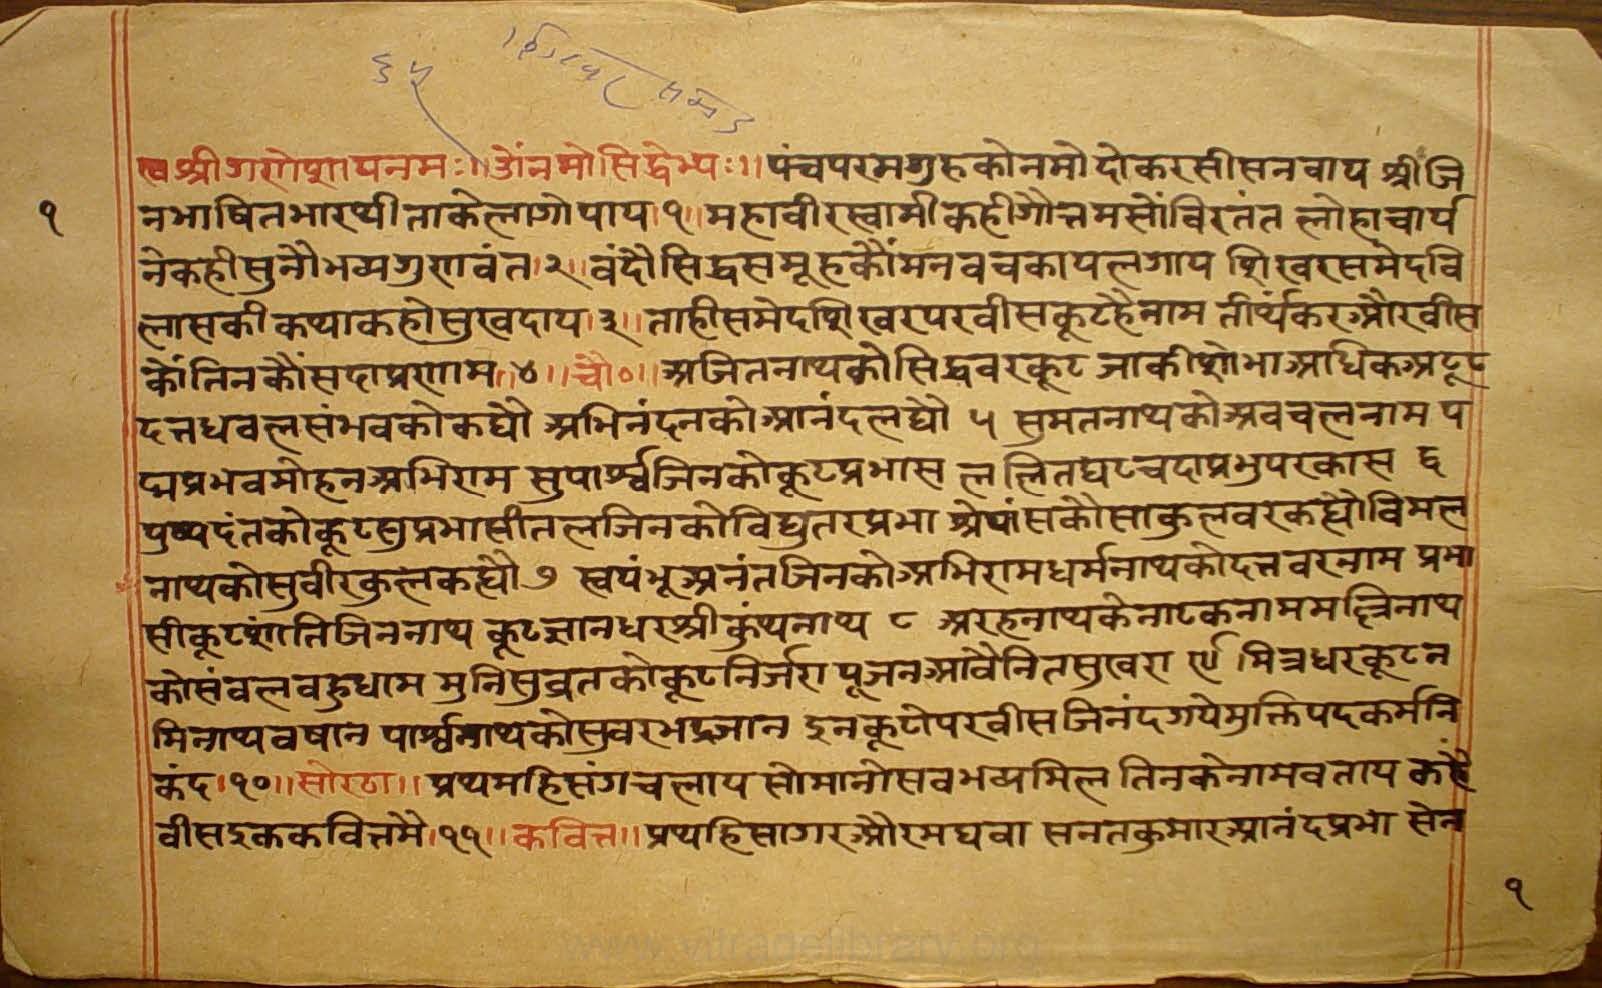 श्रीगणेशायनमः॥ ओंनमोसिद्धेभ्यः॥ पंचपरमगुरुकोनमो दोकरसीसनवाय श्रीजि
१
नभाषितभारथी ताकेलागोपाय।१॥ महावीरस्वामीकहीगौत्तमसोंविरतंत लोहाचार्य
नेकहीसुनौभव्यगुणवंत।२॥ वंदौसिद्धसमूहकौंमनवचकायलगाय शिखरसमेदवि
लासकी कथाकहोसुखदाय।३॥ ताहीसमेदशिखरपरवीसकूटहैनाम तीर्थंकरऔरवीस
कौंतिनकौंसदाप्रणाम॥४॥ चौ०॥ अजितनाथकोसिद्धवरकूट जाकीशोभाअधिकअटूट
दत्तधवलसंभवकोकह्यौ अभिनंदनकोआनंदलह्यौ ५ सुमतनाथकोअवचलनाम प
द्मप्रभवमोहनअभिराम सुपार्श्वजिनकोकूटप्रभास ललितघटचदाप्रभुपरकास ६
पुष्पदंतकोकूटसुप्रभासीतलजिनकोविद्युतरप्रभा श्रेयांसकौसाकुलवरकह्यौविमल
नाथकोसुवीरकुलकह्यौ ७ स्वयंभूअनंतजिनकोअभिरामधर्मनाथकोदत्तवरनाम प्रभा
सीकूटशांतिजिननाथ कूटज्ञानधरश्रीकुंथनाथ ८ अरहनाथकेनाटकनाममल्लिनाथ
कोसंवलवहुधाम मुनिसुव्रतकोकूटनिर्जरा पूजनआवैनितसुखरा ९ मित्रधरकूटन
मिनाथवषान पार्श्वनाथकोसुवरभद्रजान इनकूटोपरवीसजिनंदगयेमुक्तिपदकर्मनि
कंद।१०॥ सोरठा॥ प्रथमहिसंगचलाय सोमानोसवभव्यमिल तिनकेनामवताय कहूं
वीसइककवित्तमै।११॥ कवित्त॥ प्रथहिसागरऔरमघवा सनतकुमारआनंदप्रभा सेन
१
www.vitragelibrary.org